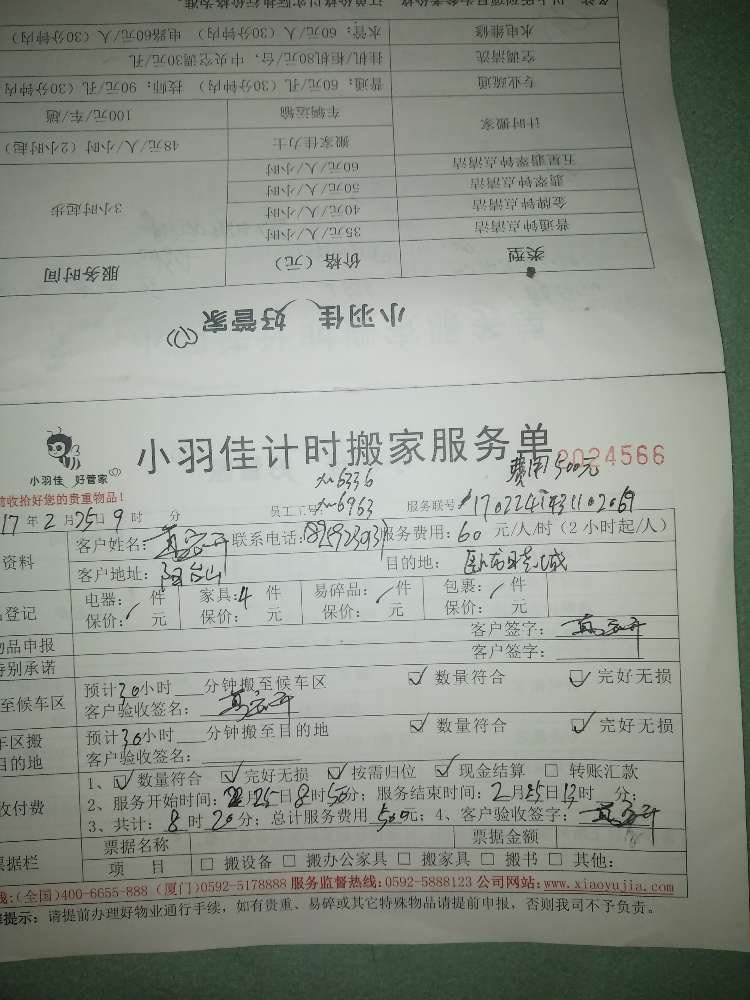 备注：以上服务项目为参考价格，订单价以实际执行价格为准。
水电维修 水管：60元/人（30分钟内） 电路60元/人（30分钟内）
空调清洗 挂机/柜机80元/台、中央空调30元/孔
专业疏通 普通：60元/孔（30分钟内） 技师：90元/孔（30分钟内）
计时搬家 车辆运输 100元/车/趟
搬家佳力士 48元/人/小时（2小时起）
五星翡翠钟点清洁 60元/人/小时
翡翠钟点清洁 50元/人/小时
金牌钟点清洁 40元/人/小时 3小时起步
普通钟点清洁 35元/人/小时
类型 价格（元） 服务时间
小羽佳 好管家
小羽佳计时搬家服务单
2024566
费用1500元
小羽佳 好管家
前收拾好您的贵重物品！
6336
6963
17年2月25日9时 分 员工工号 服务联号
资料 客户姓名： 联系电话： 服务费用：60元/人/时（2小时起/人）
客户地址： 目的地：
登记 电器： 件 家具：4件 易碎品： 件 包裹： 件
保价： 元 保价： 元 保价： 元 保价： 元
物品申报 客户签字：
特别承诺 客户签字：
至候车区 预计30小时 分钟搬至候车区 ☑数量符合 ☑完好无损
客户验收签名：
车区搬目的地 预计30小时 分钟搬至目的地 ☑数量符合 ☑完好无损
客户验收签名：
收付费 1、☑数量符合 ☑完好无损 ☑按需归位 ☑现金结算 □转账汇款
2、服务开始时间：2月25日8时50分；服务结束时间：2月25日13时 分；
3、共计：8时20分；总计服务费用500元；4、客户验收签字：
票据栏 票据名称 票据金额
项 目 □搬设备 □搬办公家具 □搬家具 □搬书 □其他：
线：(全国)400-6655-888 (厦门)0592-5178888 服务监督热线:0592-5888123 公司网站:www.xiaoyujia.com
提示：请提前办理好物业通行手续，如有贵重、易碎或其它特殊物品请提前申报，否则我司不予负责。